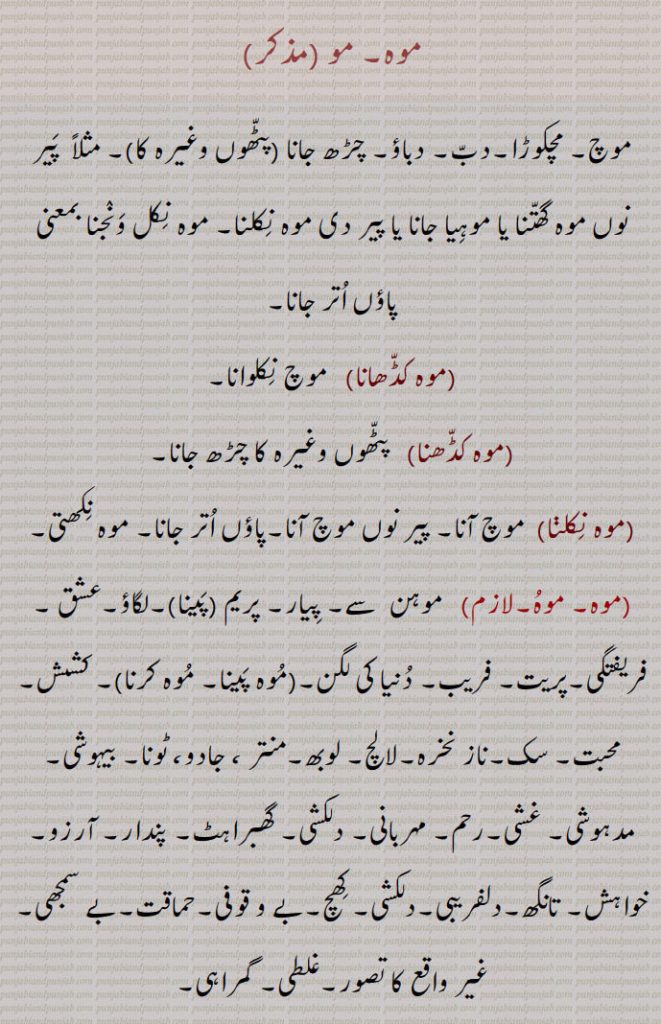 موہ۔ مو (مذکر)
موچ۔ مچکوڑا۔دبّ۔ دباؤ۔ چڑھ جانا (پٹّھوں وغیرہ کا)۔ مثلاً پَیر
نوں موہ گھتّنا یا موہِیا جانا یا پیر دی موہ نِکلنا۔ موہ نِکل وَنْجنا بمعنی
پاؤں اُتر جانا۔
(موہ کڈّھانا) موچ نِکلوانا۔
(موہ کڈّھنا) پٹّھوں وغیرہ کا چڑھ جانا۔
(موہ نِکلݨا) موچ آنا۔ پیر نوں موچ آنا۔پاؤں اُتر جانا۔ موہ نِکھتی۔
(موہ۔ موہُ۔لازم) موہن سے۔ پِیار۔ پریم (پَینا)۔لگاؤ۔عشق ۔
فریفتگی۔پریت۔ فریب۔ دُنیا کی لگن۔(مُوہ پَینا۔ مُوہ کرنا)۔ کشش۔
محبت۔ سک۔ناز نخرہ۔لالچ۔ لوبھ۔منتر ، جادو، ٹونا۔ بیہوشی۔
مدہوشی۔ غشی۔رحم۔ مہربانی۔ دلکشی۔ گھبراہٹ۔ پندار۔ آرزو۔
خواہش۔ تانگھ۔دلفریبی۔دلکشی۔کِھچ۔بے و قوفی۔حماقت۔بے سمجھی۔
غیر واقع کا تصور۔غلطی۔ گمراہی۔